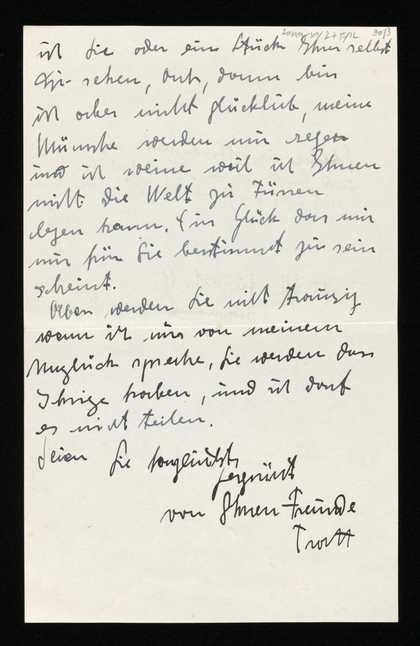 ist Sie oder ein Stück Ihrer selbst
zu sehen, Gut, dann bin
ich aber nicht glücklich, meine
Wünsche werden nur rege
und ich weine weil ich Ihnen
nicht die Welt zu Füssen
legen kann. Ein Glück das mir
nur für Sie bestimmt zu sein
scheint.
Aber werden Sie nicht traurig
wenn ich nur von meinem
Unglück spreche, Sie werden das
Ihrige haben, und ich darf
es nicht teilen.
Seien Sie
gegrüsst
von Ihrem Freunde
Trott